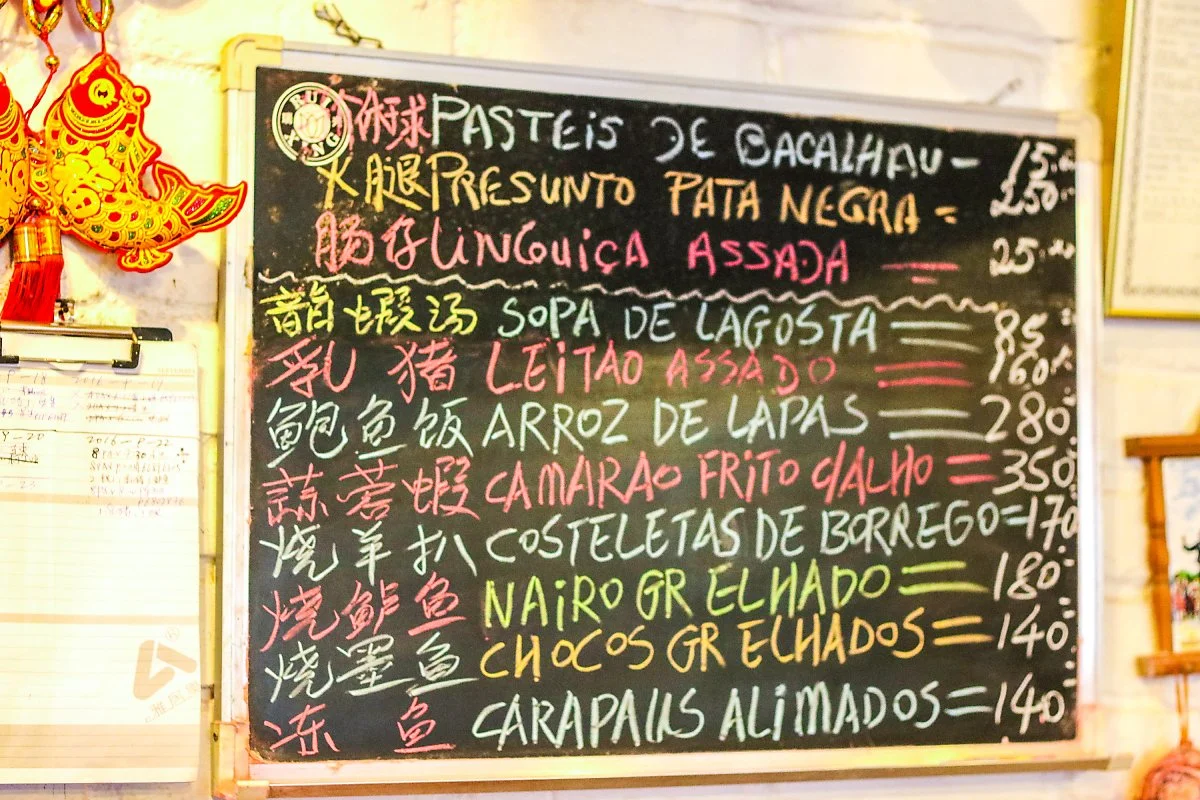 球 PASTEIS DE BACALHAU - 15
火腿 PRESUNTO PATA NEGRA = 250
肠仔 LINGUIÇA ASSADA = 25
龍蝦汤 SOPA DE LAGOSTA = 85
乳猪 LEITAO ASSADO = 160
鲍鱼饭 ARROZ DE LAPAS = 280
蒜蓉蝦 CAMARAO FRITO C/ALHO = 350
烧羊扒 COSTELETAS DE BORREGO = 170
烧鲈鱼 NAIRO GRELHADO = 180
烧墨鱼 CHOCOS GRELHADOS = 140
冻鱼 CARAPAUS ALIMADOS = 140